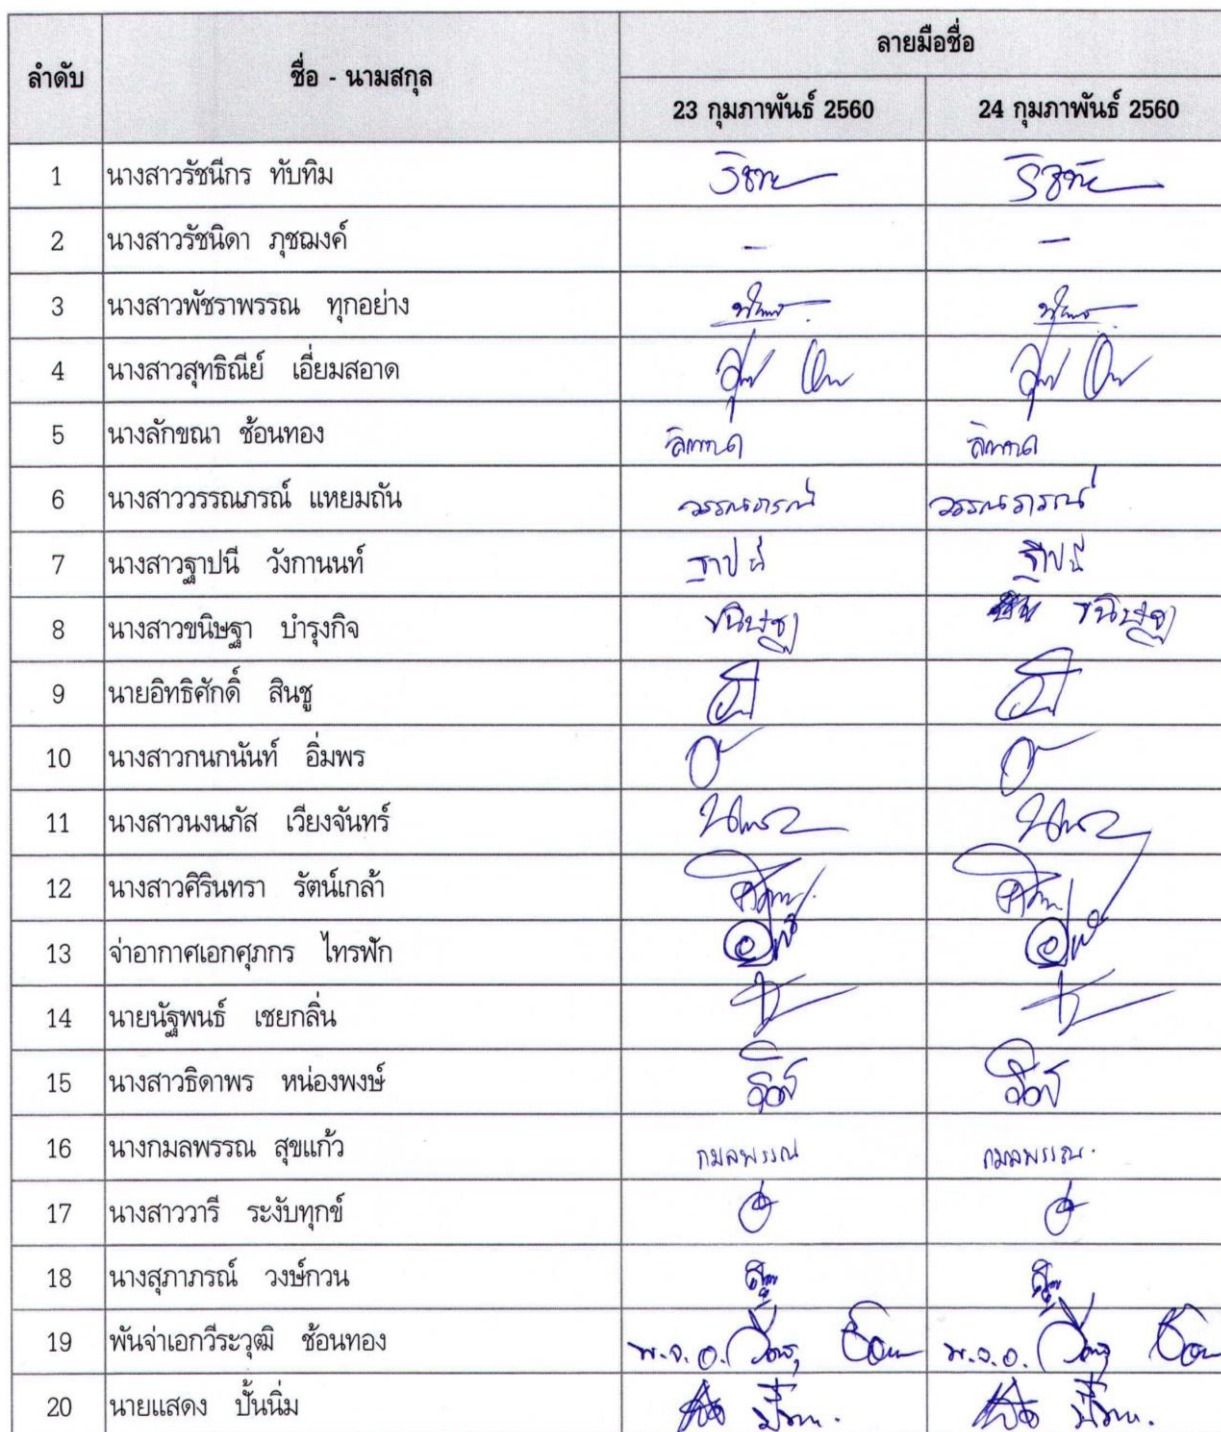 ลำดับ ชื่อ - นามสกุล ลายมือชื่อ
23 กุมภาพันธ์ 2560 24 กุมภาพันธ์ 2560
1 นางสาวรัชนีกร ทับทิม
2 นางสาวรัชนิดา ภุชฌงค์ - -
3 นางสาวพัชราพรรณ ทุกอย่าง
4 นางสาวสุทธิณีย์ เอี่ยมสอาด
5 นางลักขณา ช้อนทอง
6 นางสาววรรณภรณ์ แหยมถัน วรรณภรณ์ วรรณภรณ์
7 นางสาวฐาปนี วังกานนท์ ฐาปนี ฐาปนี
8 นางสาวขนิษฐา บำรุงกิจ ขนิษฐา ขนิษฐา
9 นายอิทธิศักดิ์ สินชู
10 นางสาวกนกนันท์ อิ่มพร
11 นางสาวนงนภัส เวียงจันทร์
12 นางสาวศิรินทรา รัตน์เกล้า
13 จ่าอากาศเอกศุภกร ไทรฟัก
14 นายนัฐพนธ์ เชยกลิ่น
15 นางสาวธิดาพร หน่องพงษ์
16 นางกมลพรรณ สุขแก้ว กมลพรรณ กมลพรรณ
17 นางสาววารี ระงับทุกข์
18 นางสุภาภรณ์ วงษ์กวน
19 พันจ่าเอกวีระวุฒิ ช้อนทอง พ.จ.อ. พ.จ.อ.
20 นายแสดง ปั้นนิ่ม